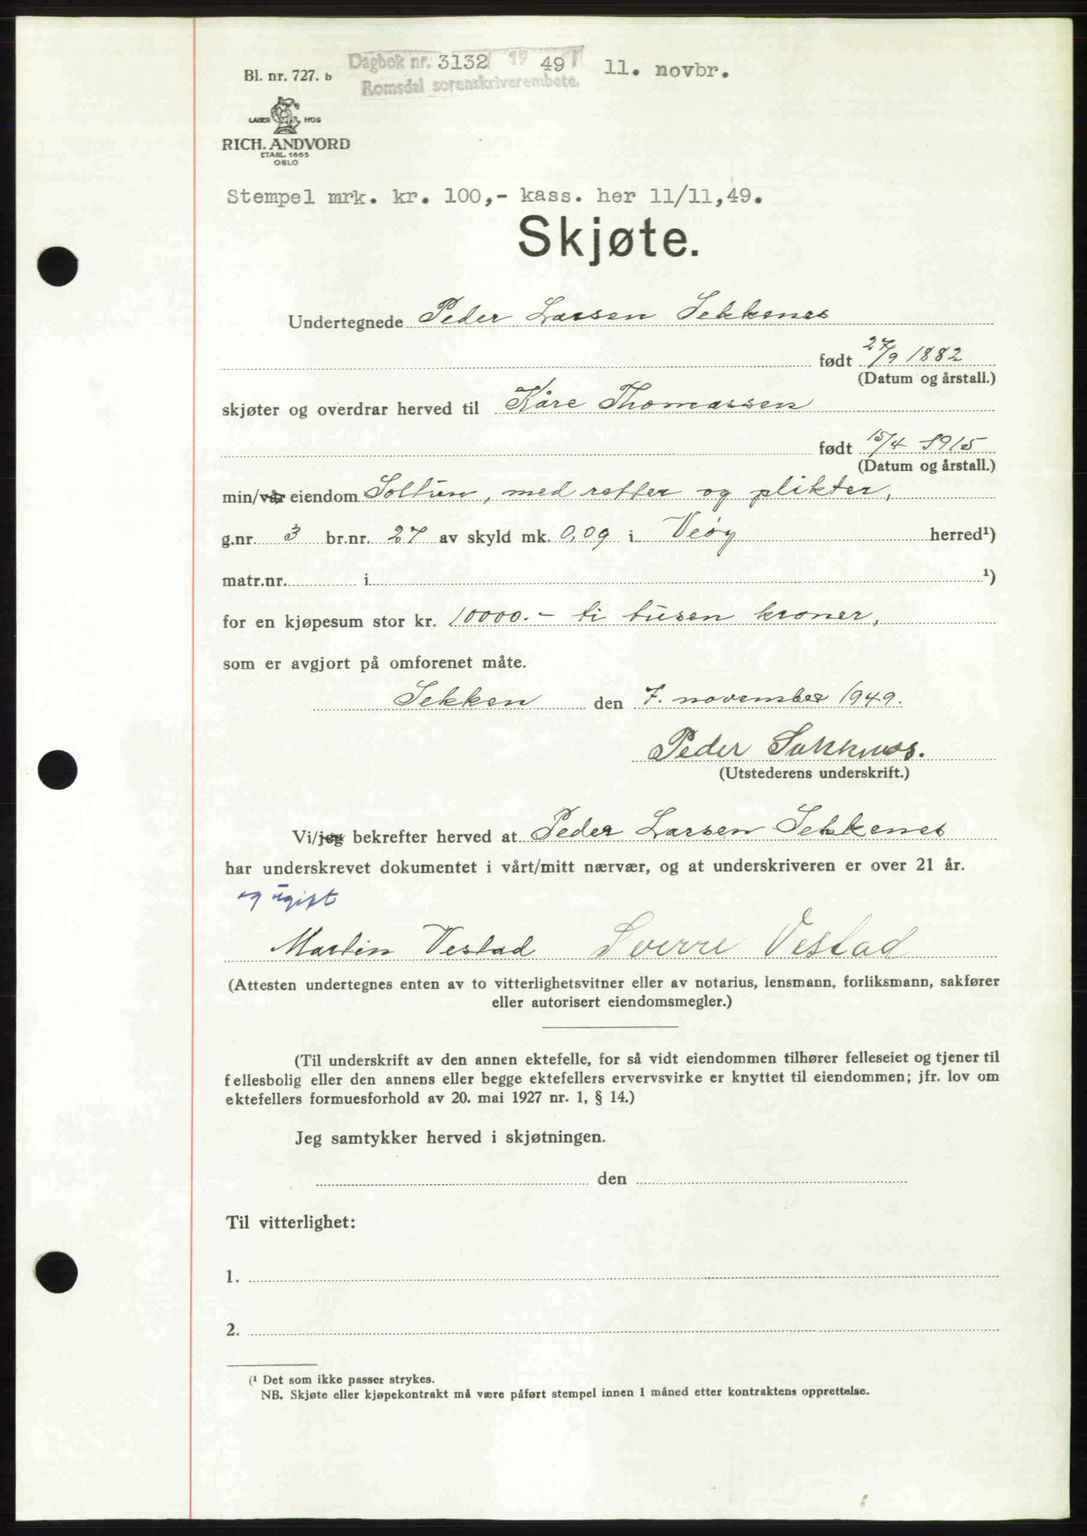 Bl. nr. 727. b
Dagbok nr. 3132 19 49
Romsdal sorenskriverembete.
11. novbr.
LAGER HOS
RICH. ANDVORD
ETABL. 1865
OSLO
Stempel mrk. kr. 100,- kass. her 11/11,49.
Skjøte.
Undertegnede Peder Larsen Sekkenes
født 27/9 1882
(Datum og årstall.)
skjøter og overdrar herved til Kåre Thomassen
født 15/4 1915
(Datum og årstall.)
min/vår eiendom Soltun, med retter og plikter,
g.nr. 3 br.nr. 27 av skyld mk. 0,09 i Veøy herred¹)
matr.nr. i ¹)
for en kjøpesum stor kr. 10000.- ti tusen kroner,
som er avgjort på omforenet måte.
Sekken den 7. november 1949.
Peder Sekknes.
(Utstederens underskrift.)
Vi/jeg bekrefter herved at Peder Larsen Sekkenes
har underskrevet dokumentet i vårt/mitt nærvær, og at underskriveren er over 21 år.
og ugift
Martin Vestad Sverre Vestad
(Attesten undertegnes enten av to vitterlighetsvitner eller av notarius, lensmann, forliksmann, sakfører
eller autorisert eiendomsmegler.)
(Til underskrift av den annen ektefelle, for så vidt eiendommen tilhører felleseiet og tjener til
fellesbolig eller den annens eller begge ektefellers ervervsvirke er knyttet til eiendommen; jfr. lov om
ektefellers formuesforhold av 20. mai 1927 nr. 1, § 14.)
Jeg samtykker herved i skjøtningen.
den
Til vitterlighet:
1.
2.
(¹ Det som ikke passer strykes.
NB. Skjøte eller kjøpekontrakt må være påført stempel innen 1 måned etter kontraktens opprettelse.